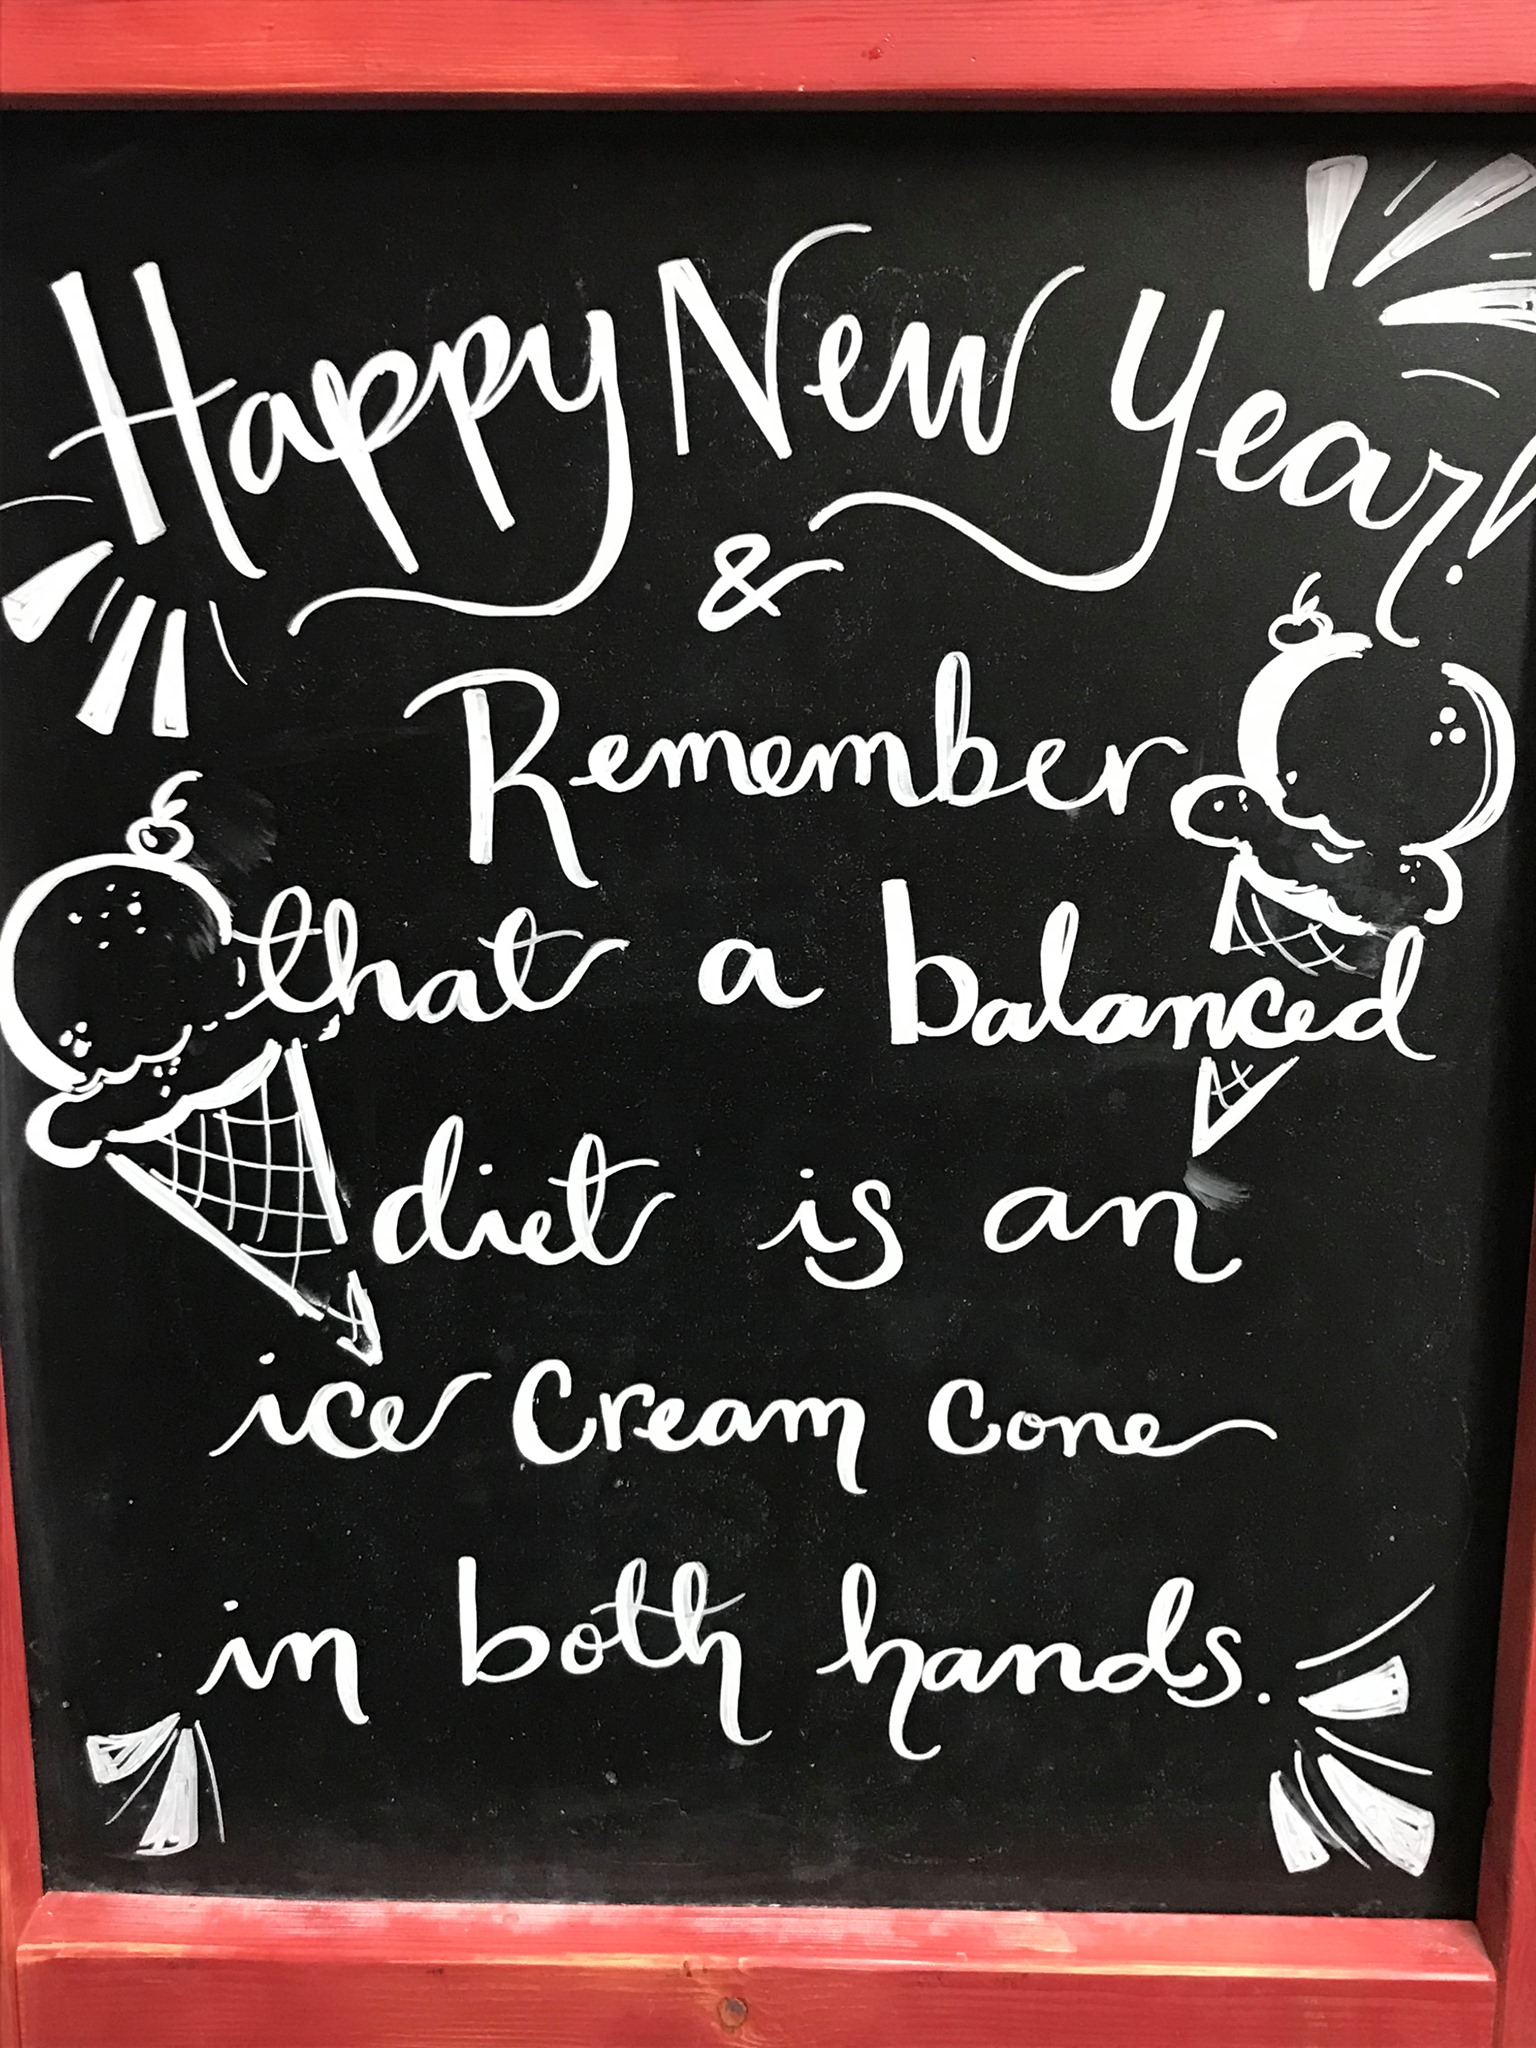 Happy New Year!
&
Remember
that a balanced
diet is an
ice cream cone
in both hands.